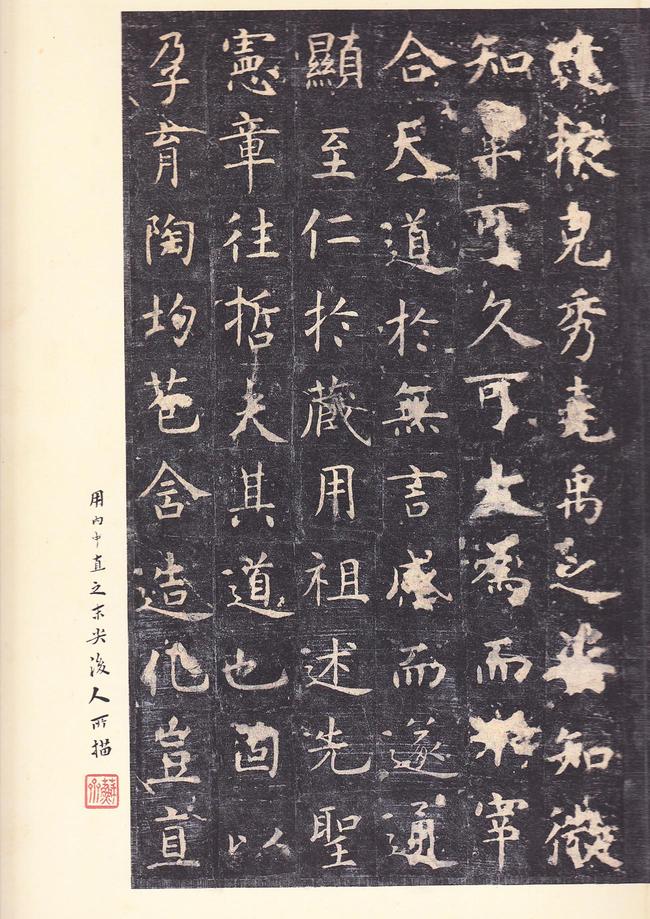 克秀堯禹之姿知微
知章可久可大為而不宰
合天道於無言感而遂通
顯至仁於藏用祖述先聖
憲章往哲夫其道也固以
孕育陶均苞含造化豈直
用內中直之末尖後人所描